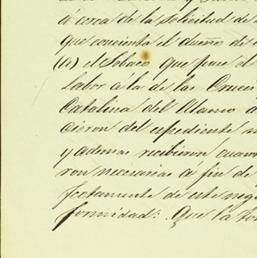 á cerca de la solicitud de
que concierta el dueño de
(a) el Tobaco que para el
Labor á la de las Cruces
Catalina del Alamo a
cieron del espediente
y ademas recibieron cuan
ron necesarias a fin de
fortamente de este neg
formidad: Que la